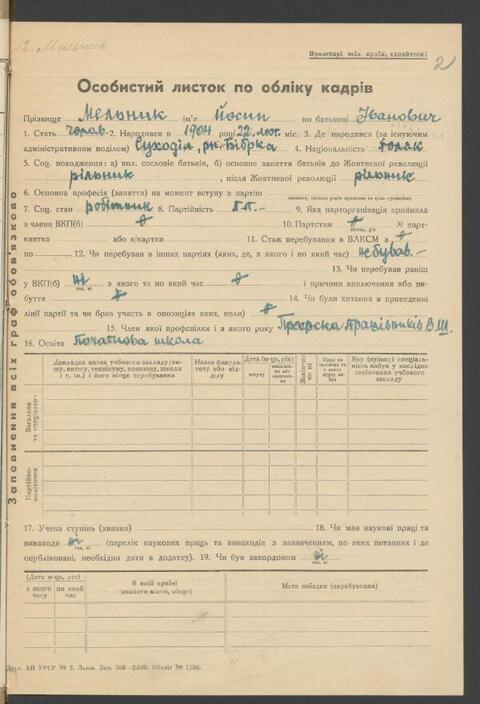 2. Мельник
Пролетарі всіх країн, єднайтеся!
2
Особистий листок по обліку кадрів
Прізвище Мельник ім'я Йосип по батькові Іванович
1. Стать чолов. 2. Народився в 1904 році 22 лют. міс. 3. Де народився (за існуючим
адміністративним поділом) Суходіл, рн. Бібрка 4. Національність поляк
5. Соц. походження: а) кол. сословіє батьків, б) основне заняття батьків до Жовтневої революції
рільник, після Жовтневої революції рільник
6. Основна професія (заняття) на момент вступу в партію
7. Соц. стан робітник 8. Партійність б.п.- 9. Яка парторганізація прийняла
в члени ВКП(б) 10. Партстаж № парт-
місяць, рік
квитка або к/картки 11. Стаж перебування в ВЛКСМ з
по 12. Чи перебував в інших партіях (яких, де, з якого і по який час) не бував.-
13. Чи перебував раніш
у ВКП(б) ні з якого та по який час і причини виключення або ви-
так, ні
буття 14. Чи були хитання в проведенні
лінії партії та чи брав участь в опозиціях яких, коли)
15. Член якої профспілки і з якого року Профспілка Працівників В.Ш.
16. Освіта Початкова школа
Докладна назва учбового закладу (ви-
шу, витшу, технікуму, комвишу, школи
і т. ін.) і його місце перебування
Назва факуль-
тету або від-
ділу
Дата (м-ць, рік)
вступу
Закінчив
чи ні
Яку (вузьку) спеціаль-
ність набув у наслідок
закінчення учбового
закладу
Загальна
та спеціальна
Партійно-
політична
17. Учена ступінь (звання) 18. Чи має наукові праці та
винаходи ні (перелік наукових праць та винаходів з зазначенням, по яких питаннях і де
так, ні
опубліковані, необхідно дати в додатку). 19. Чи був закордоном ні
так, ні
(Дата м-ць, рік)
з якого часу
по який час
В якій країні
(вказати місто, місце)
Мета поїздки (перебування)
Друк. АН УРСР № 2. Львів. Зам. 368—2.000. Обліт № 1186.
Заповнення всіх граф обов'язково